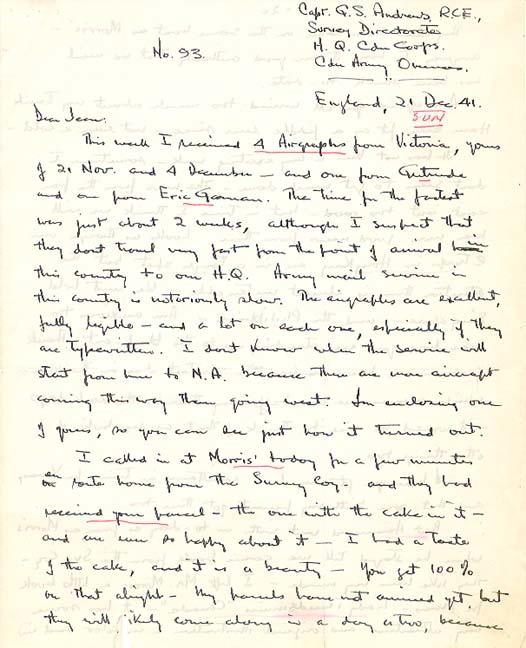 Capt. G.S. Andrews, R.C.E.,
Survey Directorate
No. 93.
H.Q. Cdn Corps.
Cdn Army Overseas.
England, 21 Dec. 41.
SUN
Dear Jean:
This week I received 4 Airgraphs from Victoria, yours
of 21 Nov. and 4 December – and one from Gertrude
and one from Eric Gorman. The time for the fastest
was just about 2 weeks, although I suspect that
they dont travel very fast from the point of arrival in
this country to our H.Q. Army mail service in
this country is notoriously slow. The airgraphs are excellent,
fully legible – and a lot on each one, especially if they
are typewritten. I dont know when the service will
start from here to N.A. because there are more aircraft
coming this way than going west. Im enclosing one
of yours, so you can see just how it turned out.
I called in at Morris' today for a few minutes
en route home from the Survey Coy. and they had
received your parcel – the one with the cake in it –
and are so happy about it – I had a taste
of the cake, and it is a beauty – You get 100%
on that alright – My parcels have not arrived yet, but
they will likely come along in a day or two, because